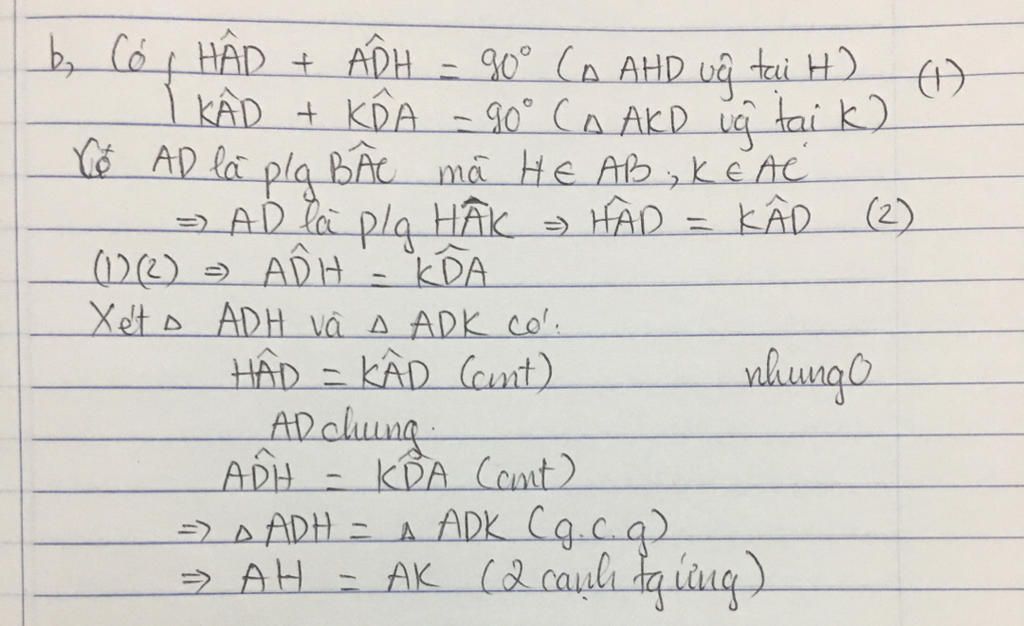 b, Có { HÂD + AD̂H = 90° (△ AHD vĝ tại H) (1)
KÂD + KD̂A = 90° (△ AKD vĝ tại K)
Có AD là p/g BÂC mà H ∈ AB, K ∈ AC
⇒ AD là p/g HÂK ⇒ HÂD = KÂD (2)
(1)(2) ⇒ AD̂H = KD̂A
Xét △ ADH và △ ADK có:
HÂD = KÂD (cmt) nhung0
AD chung.
AD̂H = KD̂A (cmt)
⇒ △ ADH = △ ADK (g.c.g)
⇒ AH = AK (2 cạnh tg ứng)